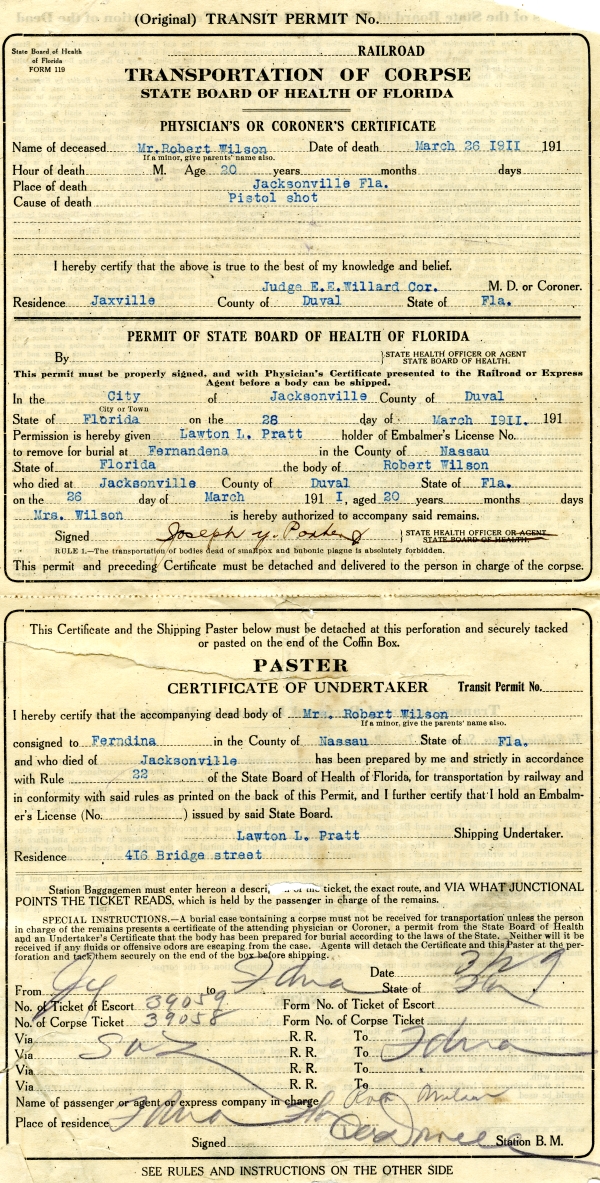 (Original) TRANSIT PERMIT No.
State Board of Health
of Florida
FORM 119
RAILROAD
TRANSPORTATION OF CORPSE
STATE BOARD OF HEALTH OF FLORIDA
PHYSICIAN'S OR CORONER'S CERTIFICATE
Name of deceased Mr.Robert Wilson Date of death March 26 I9II 191
If a minor, give parents' name also.
Hour of death M. Age 20 years months days
Place of death Jacksonville Fla.
Cause of death Pistol shot
I hereby certify that the above is true to the best of my knowledge and belief.
Judge E.E.Willard Cor. M. D. or Coroner.
Residence Jaxville County of Duval State of Fla.
PERMIT OF STATE BOARD OF HEALTH OF FLORIDA
By STATE HEALTH OFFICER OR AGENT
STATE BOARD OF HEALTH.
This permit must be properly signed, and with Physician's Certificate presented to the Railroad or Express
Agent before a body can be shipped.
In the City of Jacksonville County of Duval
City or Town
State of Florida on the 28 day of March I9II. 191
Permission is hereby given Lawton L. Pratt holder of Embalmer's License No.
to remove for burial at Fernandena in the County of Nassau
State of Florida the body of Robert Wilson
who died at Jacksonville County of Duval State of Fla.
on the 26 day of March 191 I, aged 20 years months days
Mrs. Wilson is hereby authorized to accompany said remains.
Signed Joseph Y. Porter STATE HEALTH OFFICER OR AGENT
STATE BOARD OF HEALTH.
RULE 1.—The transportation of bodies dead of smallpox and bubonic plague is absolutely forbidden.
This permit and preceding Certificate must be detached and delivered to the person in charge of the corpse.
This Certificate and the Shipping Paster below must be detached at this perforation and securely tacked
or pasted on the end of the Coffin Box.
PASTER
CERTIFICATE OF UNDERTAKER Transit Permit No.
I hereby certify that the accompanying dead body of Mrs. Robert Wilson
If a minor, give the parents' name also.
consigned to Ferndina in the County of Nassau State of Fla.
and who died of Jacksonville has been prepared by me and strictly in accordance
with Rule 22 of the State Board of Health of Florida, for transportation by railway and
in conformity with said rules as printed on the back of this Permit, and I further certify that I hold an Embalm-
er's License (No. ) issued by said State Board.
Lawton L. Pratt Shipping Undertaker.
Residence 4I6 Bridge street
Station Baggagemen must enter hereon a ticket, the exact route, and VIA WHAT JUNCTIONAL
POINTS THE TICKET READS, which is held by the passenger in charge of the remains.
SPECIAL INSTRUCTIONS.—A burial case containing a corpse must not be received for transportation unless the person
in charge of the remains presents a certificate of the attending physician or Coroner, a permit from the State Board of Health
and an Undertaker's Certificate that the body has been prepared for burial according to the laws of the State. Neither will it be
received if any fluids or offensive odors are escaping from the case. Agents will detach the Certificate and this Paster at the per-
foration and tack them securely on the end of the box before shipping.
Date
From to Fdna State of Fla
No. of Ticket of Escort 39059 Form No. of Ticket of Escort
No. of Corpse Ticket 39058 Form No. of Corpse Ticket
Via R. R. To
Via R. R. To Fdna
Via R. R. To
Via R. R. To
Name of passenger or agent or express company in charge Robt Wilson
Place of residence Fdna Fla
Signed Station B. M.
SEE RULES AND INSTRUCTIONS ON THE OTHER SIDE